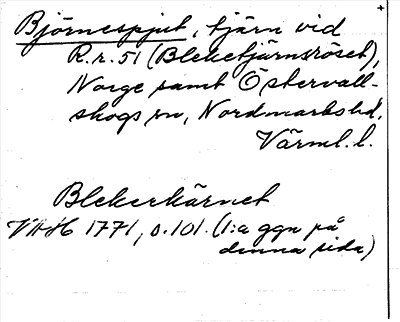 Björnespjut, tjärn vid
R.r. 51 (Bleketjärnsröset),
Norge samt Östervall-
skogs sn, Nordmarks hd,
Värml. l.
Blekerkärnet
VHH 1771, s. 101. (1:a ggn på
denna sida)